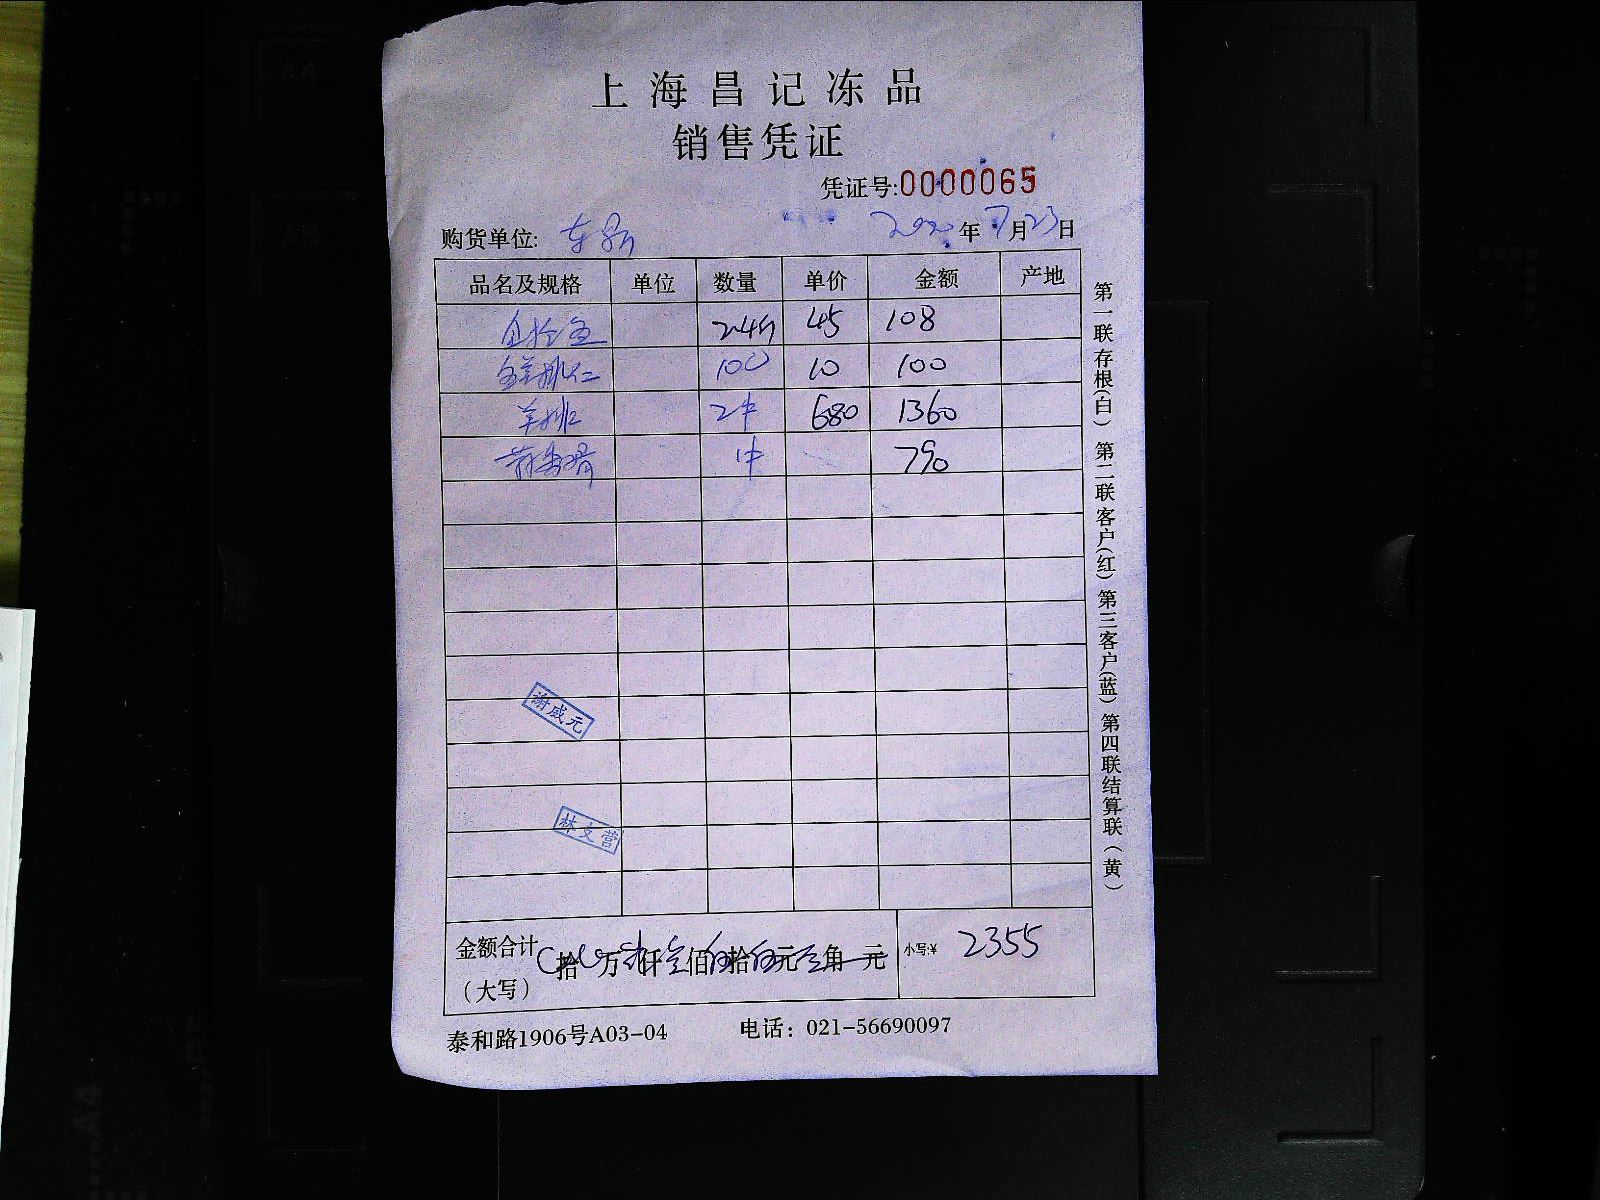 上海昌记冻品
销售凭证
凭证号:0000065
购货单位: 年7月23日
品名及规格 单位 数量 单价 金额 产地
45 108
100 10 100
羊排 2件 680 1360
1件 790
谢威元
林文营
金额合计(大写) 拾 万 仟 佰 拾 元 角 元 小写:¥ 2355
泰和路1906号A03-04 电话:021-56690097
第一联存根(白) 第二联客户(红) 第三客户(蓝) 第四联结算联(黄)